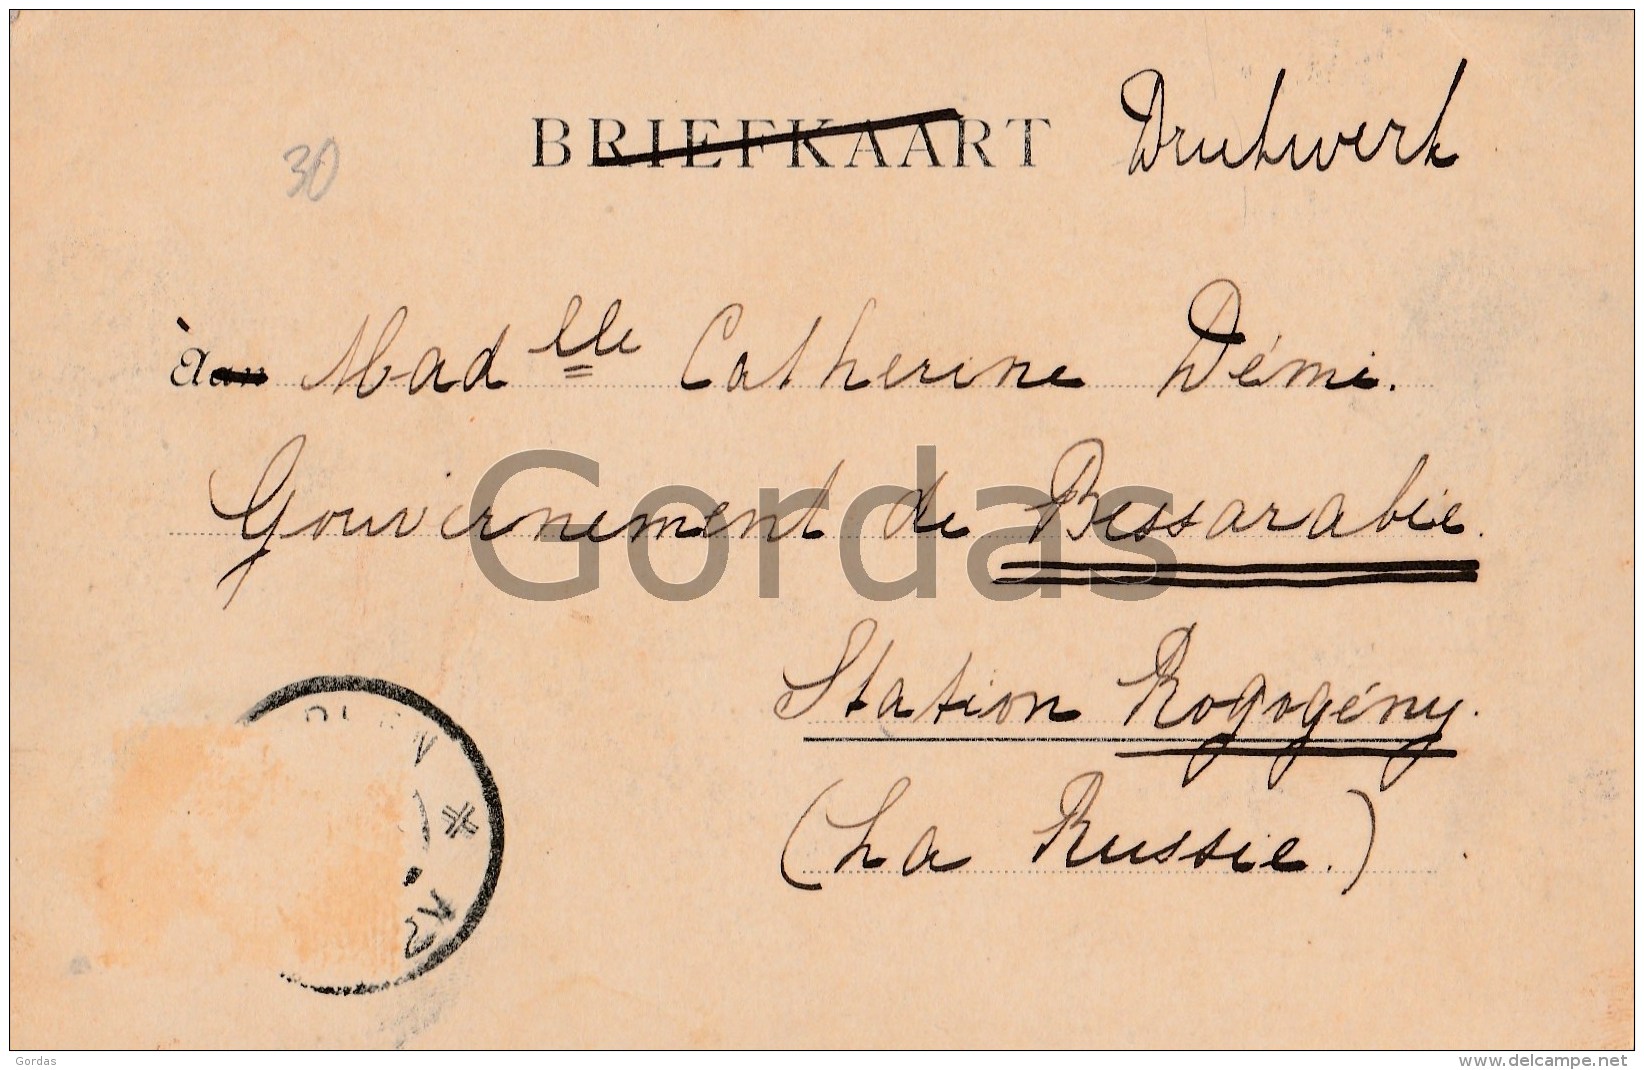 BRIEFKAART Drukwerk
30
à Aan Mad lle Catherine Démi.
Gouvernement de Bessarabie.
Gordas
Station Rogogény.
(La Russie.)
Gordas
www.delcampe.net